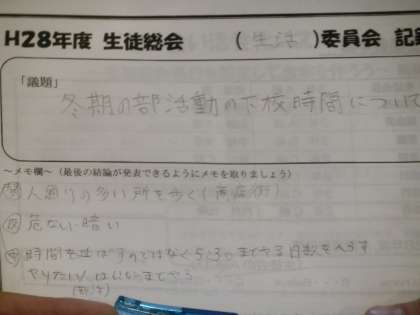 H28年度 生徒総会 (生活)委員会 記
「議題」
冬期の部活動の下校時間について
～メモ欄～(最後の結論が発表できるようにメモを取りましょう)
人通りの多い所を歩く(商店街)
危ない・暗い
時間を延ばすのではなく5:30までやる日数をへらす
やりたい人はいないまでやる